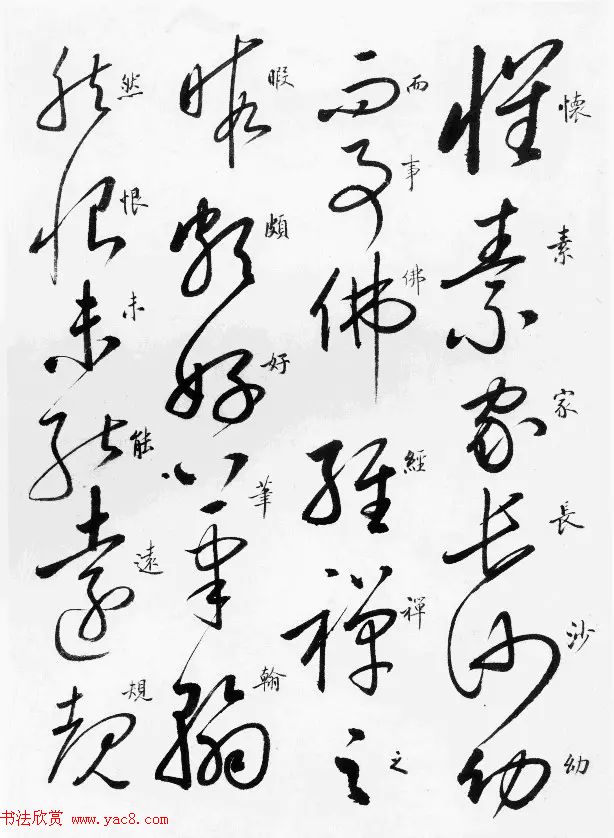 懷素家長沙幼
而事佛經禪之
暇頗好筆翰
然恨未能遠規
书法欣赏 www.yac8.com